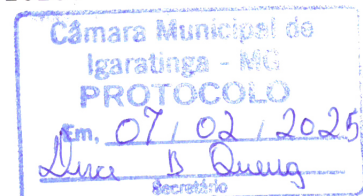 Câmara Municipal de
Igaratinga - MG
PROTOCOLO
Em, 07 / 02 / 2025
B
Secretário